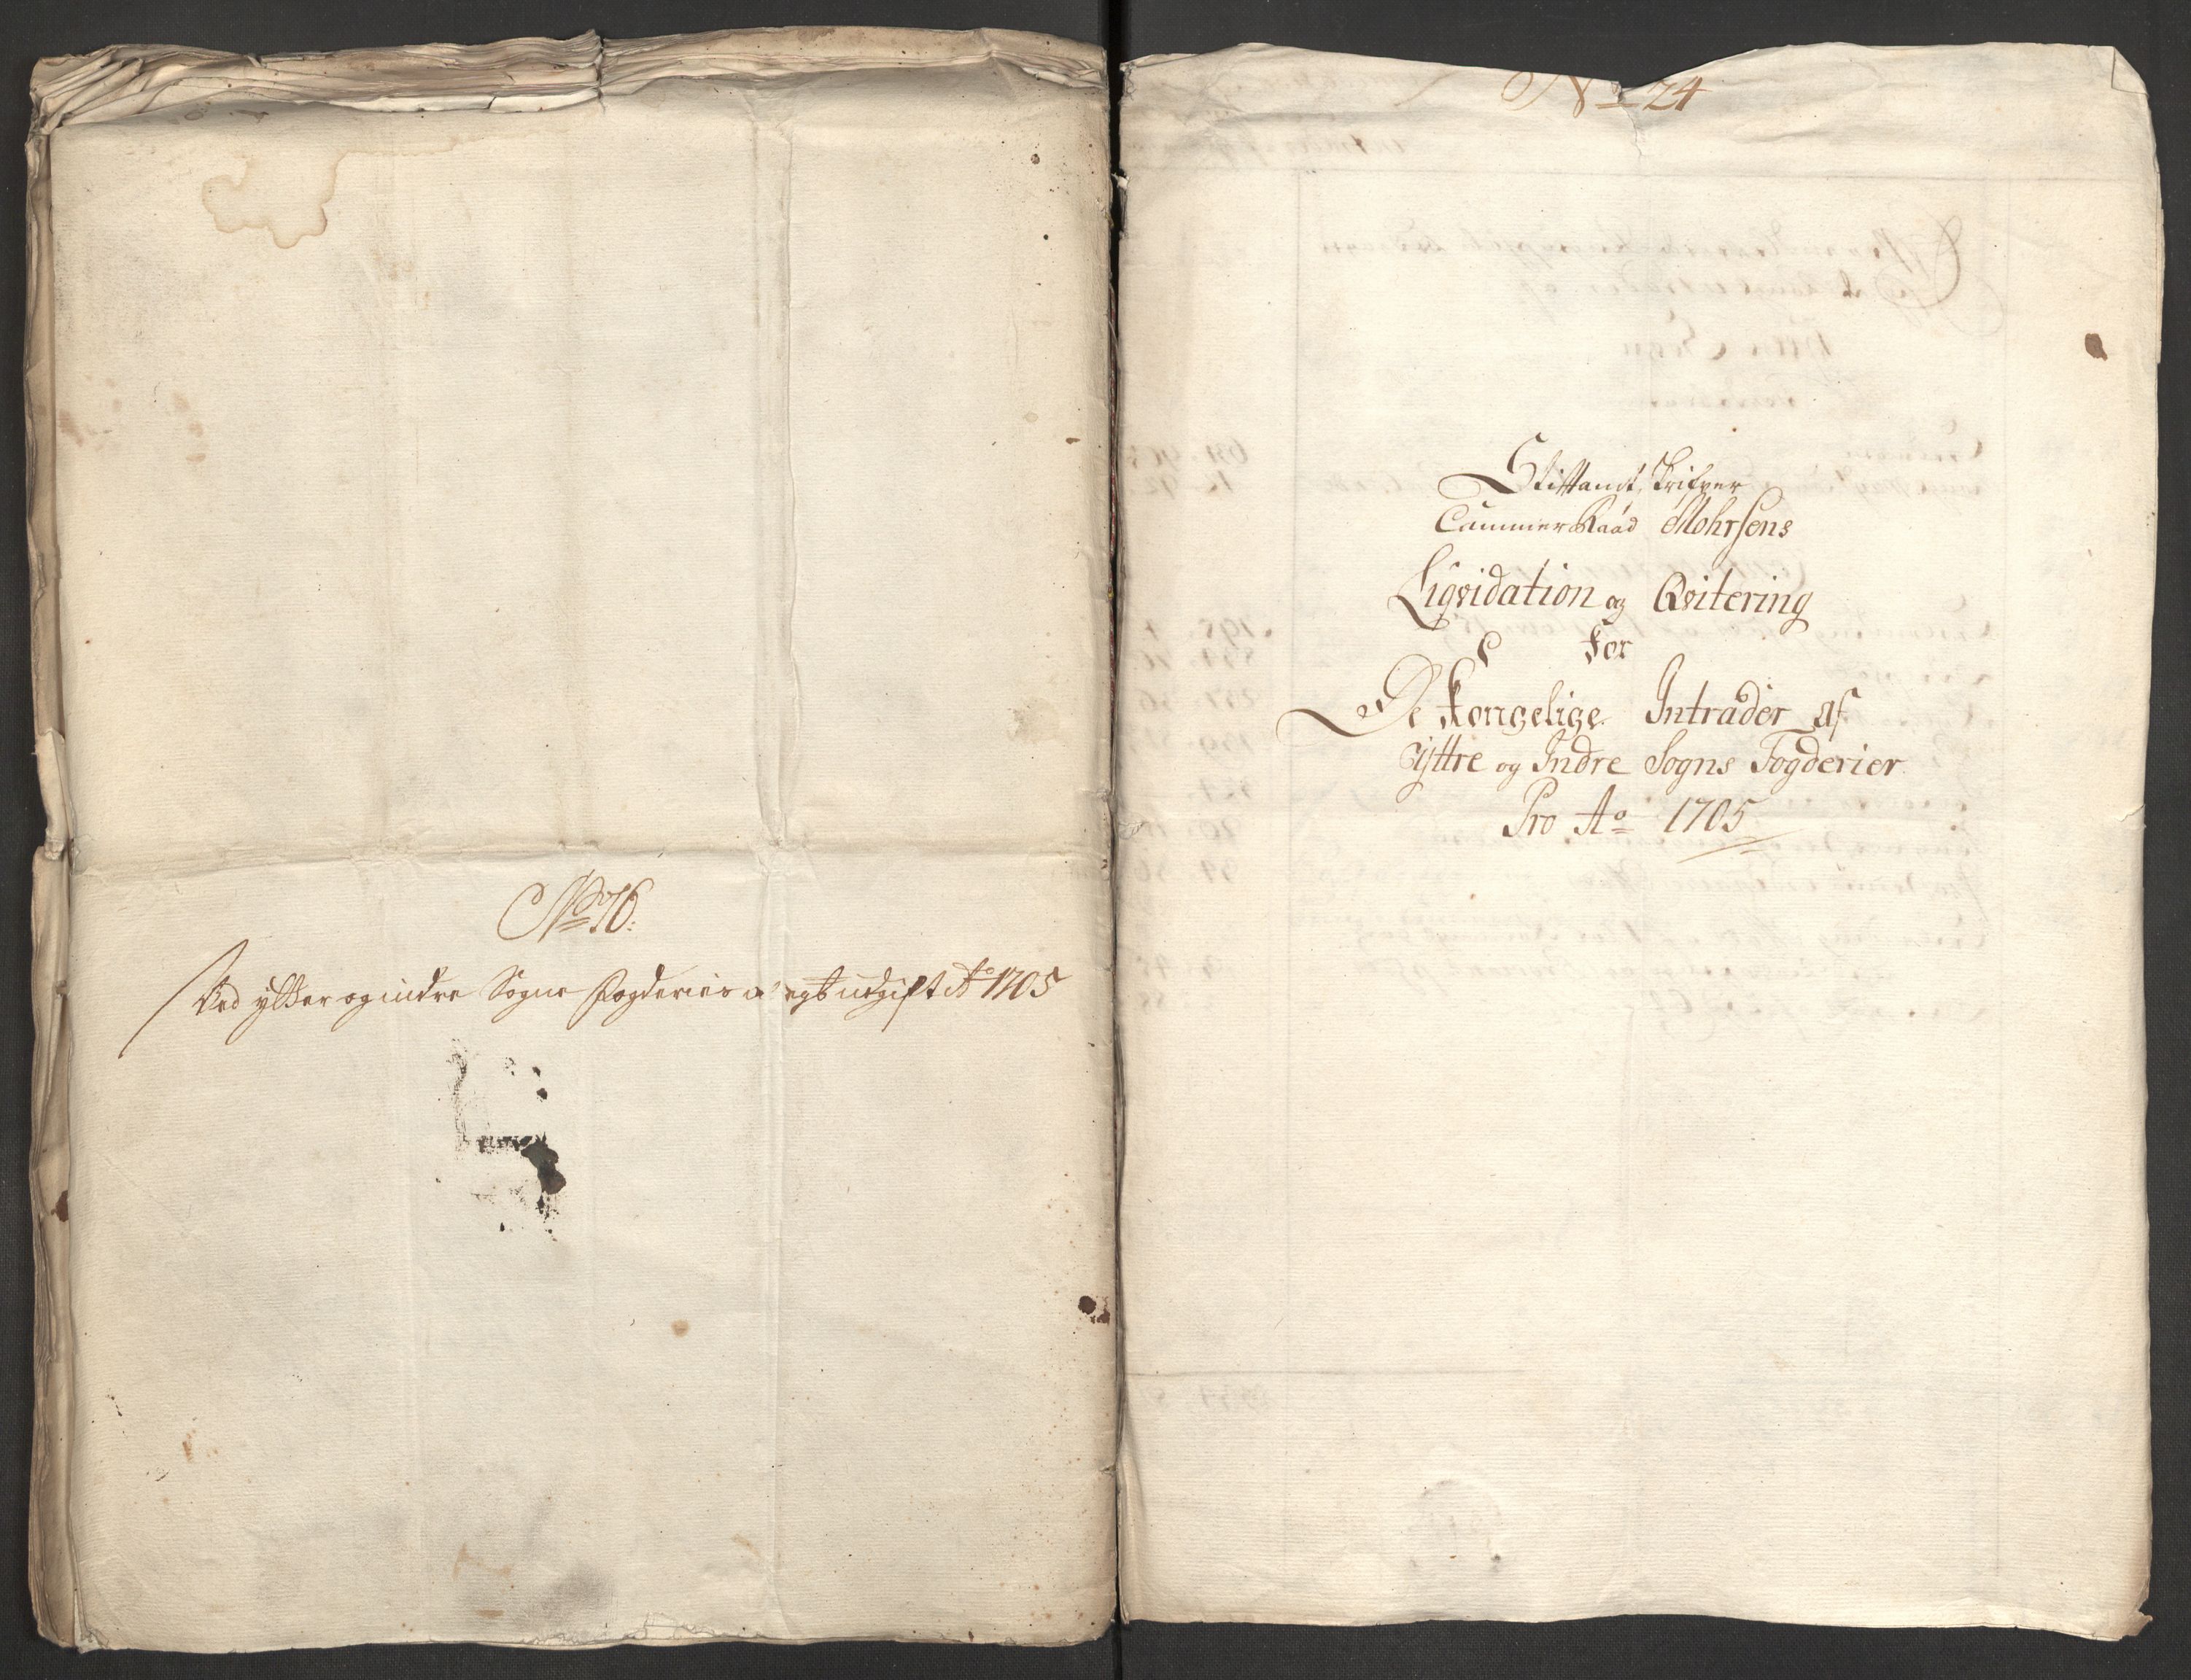 No 16.
Ved ytter og indre Sogns Fogderies udgift Ao 1705
No 24
Stiftamt Skrifver
Cammer Raad Mohrsens
Liqvidation og Qvitering
for
De Kongelige Intrader af
Yttre og Indre Sogns Fogderier
Pro Ao 1705